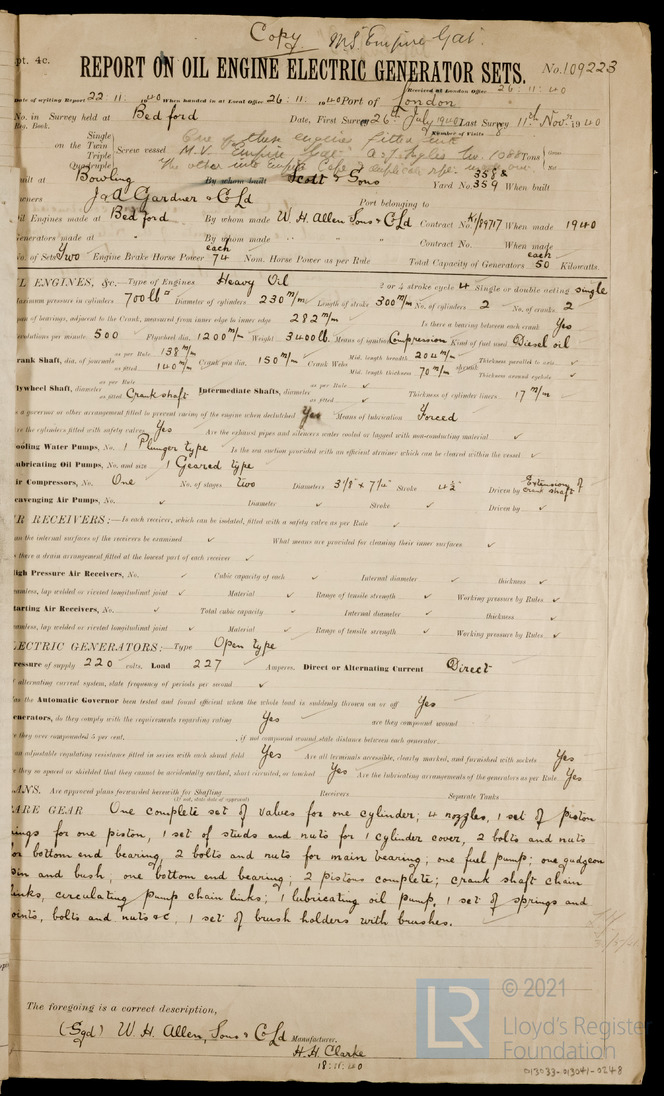 Copy MS Empire Gat.
pt. 4c.
REPORT ON OIL ENGINE ELECTRIC GENERATOR SETS.
No. 109223
Received at London Office 26 : 11 : 40
Date of writing Report 22 : 11 : 1940 When handed in at Local Office 26 : 11 : 1940 Port of London
No. in Survey held at Bedford Date, First Survey 26th July 1940 Last Survey 11th Novr 1940
Reg. Book. Number of Visits
Single
on the Twin Screw vessel
Triple
Quadruple
One of these engines fitted into
M.V. Empire Tons
The other into Empire Cape
built at Bowling By whom built Scott & Sons Yard No. 358 & 359 When built
Owners J & A Gardner & C Ld Port belonging to
Oil Engines made at Bedford By whom made W. H. Allen Sons & C Ld Contract No. When made 1940
Generators made at " By whom made " " " Contract No. When made
No. of Sets Two Engine Brake Horse Power each 74 Nom. Horse Power as per Rule Total Capacity of Generators each 50 Kilowatts.
IL ENGINES, &c.—Type of Engines Heavy Oil 2 or 4 stroke cycle 4 Single or double acting single
Maximum pressure in cylinders 700 lb □" Diameter of cylinders 230 m/m Length of stroke 300 m/m No. of cylinders 2 No. of cranks 2
pan of bearings, adjacent to the Crank, measured from inner edge to inner edge 282 m/m Is there a bearing between each crank Yes
evolutions per minute 500 Flywheel dia. 1200 m/m Weight 3400 lb. Means of ignition Compression Kind of fuel used Diesel oil
rank Shaft, dia. of journals as per Rule 138 m/m as fitted 140 m/m Crank pin dia. 150 m/m Crank Webs Mid. length breadth 204 m/m Mid. length thickness 70 m/m shrunk Thickness parallel to axis ✓ Thickness around eyehole ✓
lywheel Shaft, diameter as per Rule as fitted Crank shaft Intermediate Shafts, diameter as per Rule ✓ as fitted ✓ Thickness of cylinder liners 17 m/m
s a governor or other arrangement fitted to prevent racing of the engine when declutched Yes Means of lubrication Forced
re the cylinders fitted with safety valves Yes Are the exhaust pipes and silencers water cooled or lagged with non-conducting material ✓
ooling Water Pumps, No. 1 Plunger type Is the sea suction provided with an efficient strainer which can be cleared within the vessel ✓
ubricating Oil Pumps, No. and size 1 Geared type
ir Compressors, No. One No. of stages two Diameters 3⅛" & 7¼" Stroke 4½ Driven by Extension of crank shaft
cavenging Air Pumps, No. ✓ Diameter ✓ Stroke ✓ Driven by ✓
R RECEIVERS:—Is each receiver, which can be isolated, fitted with a safety valve as per Rule ✓
an the internal surfaces of the receivers be examined ✓ What means are provided for cleaning their inner surfaces ✓
s there a drain arrangement fitted at the lowest part of each receiver ✓
igh Pressure Air Receivers, No. ✓ Cubic capacity of each ✓ Internal diameter ✓ thickness ✓
eamless, lap welded or riveted longitudinal joint ✓ Material ✓ Range of tensile strength ✓ Working pressure by Rules ✓
tarting Air Receivers, No. ✓ Total cubic capacity ✓ Internal diameter ✓ thickness ✓
eamless, lap welded or riveted longitudinal joint ✓ Material ✓ Range of tensile strength ✓ Working pressure by Rules ✓
ECTRIC GENERATORS:—Type Open type
ressure of supply 220 volts. Load 227 Amperes. Direct or Alternating Current Direct
f alternating current system, state frequency of periods per second ✓
as the Automatic Governor been tested and found efficient when the whole load is suddenly thrown on or off Yes
enerators, do they comply with the requirements regarding rating Yes are they compound wound
re they over compounded 5 per cent. , if not compound wound state distance between each generator
an adjustable regulating resistance fitted in series with each shunt field Yes Are all terminals accessible, clearly marked, and furnished with sockets Yes
re they so spaced or shielded that they cannot be accidentally earthed, short circuited, or touched Yes Are the lubricating arrangements of the generators as per Rule Yes
ANS. Are approved plans forwarded herewith for Shafting Receivers Separate Tanks
(If not, state date of approval)
ARE GEAR One complete set of valves for one cylinder; 4 nozzles, 1 set of piston
rings for one piston, 1 set of studs and nuts for 1 cylinder cover, 2 bolts and nuts
for bottom end bearing, 2 bolts and nuts for main bearing; one fuel pump; one gudgeon
pin and bush; one bottom end bearing; 2 pistons complete; crank shaft chain
links, circulating pump chain links; 1 lubricating oil pump, 1 set of springs and
joints, bolts and nuts &c, 1 set of brush holders with brushes.
The foregoing is a correct description,
(Sgd) W. H. Allen, Sons & C Ld Manufacturer.
H. H. Clarke
18 : 11 : 40
LR © 2021
Lloyd's Register
Foundation
013033-013041-0248